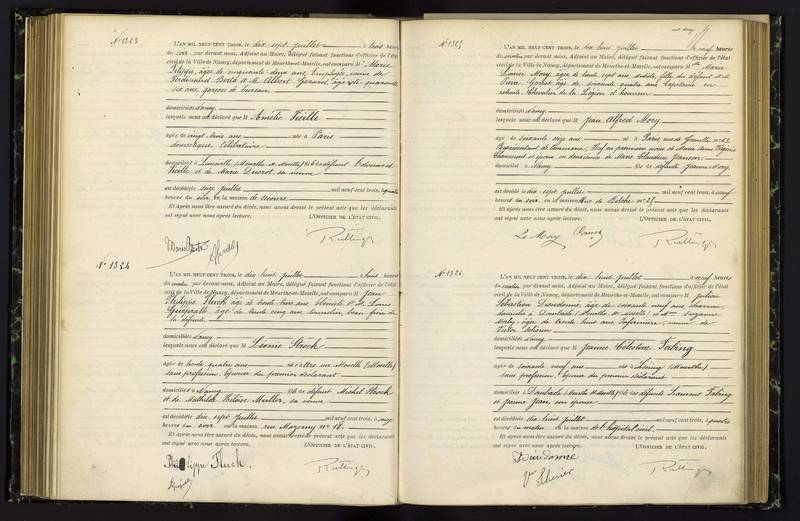 N° 1323
L'AN MIL NEUF CENT TROIS, le dix sept juillet à trois heures
du soir par devant nous, Adjoint au Maire, délégué faisant fonctions d'officier de l'état
civil de la Ville de Nancy, département de Meurthe-et-Moselle, ont comparu M Marie
âgée de cinquante deux ans, employée, veuve de
Ferdinand et M. Albert Gérard, âgé de quarante
six ans garçon de bureau
domiciliés à Nancy
lesquels nous ont déclaré que M Amélie Vieille
âgée de vingt trois ans née à Paris
domestique célibataire
domiciliée à Lunéville (Meurthe et Moselle) fille de défunt Edouard
Vieille et de Marie Ducrot, sa veuve
est décédée seize juillet mil neuf cent trois, à quatre
heures du soir en la maison de secours.
Et après nous être assuré du décès, nous avons dressé le présent acte que les déclarants
ont signé avec nous après lecture. L'OFFICIER DE L'ÉTAT CIVIL,
N° 1324
L'AN MIL NEUF CENT TROIS, le dix huit juillet à huit heures
du matin par devant nous, Adjoint au Maire, délégué faisant fonctions d'officier de l'état
civil de la Ville de Nancy, département de Meurthe-et-Moselle, ont comparu M Jean
Philippe Fluck, âgé de trente trois ans ébéniste et M. Louis
âgé de trente cinq ans, beau frère de
la défunte
domiciliés à Nancy
lesquels nous ont déclaré que M Léonie Strock
âgée de trente quatre ans née à Ars sur Moselle (Moselle)
sans profession, épouse du premier déclarant
domiciliée à Nancy fille de défunt Michel Strock
et de Mathilde Héloïse Muller, sa veuve
est décédée dix sept juillet mil neuf cent trois, à onze
heures du soir en la maison rue Mazagny n° 18.
Et après nous être assuré du décès, nous avons dressé le présent acte que les déclarants
ont signé avec nous après lecture. L'OFFICIER DE L'ÉTAT CIVIL,
Philippe Fluck.
N° 1325
L'AN MIL NEUF CENT TROIS, le dix huit juillet à neuf heures
du matin par devant nous, Adjoint au Maire, délégué faisant fonctions d'officier de l'état
civil de la Ville de Nancy, département de Meurthe-et-Moselle, ont comparu Mlle Marie
Louise Mory, âgée de trente sept ans artiste, fille du défunt et M.
âgé de soixante quatre ans Capitaine en
retraite Chevalier de la Légion d'honneur
domiciliés à Nancy
lesquels nous ont déclaré que M Jean Alfred Mory
âgé de soixante seize ans né à Paris, rue de Grenelle n° 62
Représentant de Commerce, Veuf en premières noces de Marie Anne Virginie
Chaumont et époux en deuxièmes de Marie Claudine Jeanson
domicilié à Nancy fils de défunte Jeanne Mory
est décédé le dix sept juillet mil neuf cent trois, à neuf
heures du soir en la maison Rue de Bitche n° 25
Et après nous être assuré du décès, nous avons dressé le présent acte que les déclarants
ont signé avec nous après lecture. L'OFFICIER DE L'ÉTAT CIVIL,
N° 1326
L'AN MIL NEUF CENT TROIS, le dix huit juillet à neuf heures
du matin par devant nous, Adjoint au Maire, délégué faisant fonctions d'officier de l'état
civil de la Ville de Nancy, département de Meurthe-et-Moselle, ont comparu M Julien
Sébastien Dieudonné, âgé de soixante neuf ans,
domicilié à Dombasle (Meurthe et Moselle) et Me Suzanne
âgée de trente huit ans Infirmière, veuve de
Victor
domiciliés à Nancy
lesquels nous ont déclaré que M Jeanne Célestine Fabing
âgée de soixante neuf ans née à Lening (Meurthe)
sans profession, épouse du premier déclarant
domiciliée à Dombasle (Meurthe et Moselle) fille de défunts Laurent Fabing
et Jeanne Jean, son épouse
est décédée dix huit juillet mil neuf cent trois, à quatre
heures du matin en la maison de l'hôpital civil.
Et après nous être assuré du décès, nous avons dressé le présent acte que les déclarants
ont signé avec nous après lecture. L'OFFICIER DE L'ÉTAT CIVIL,
Dieudonné